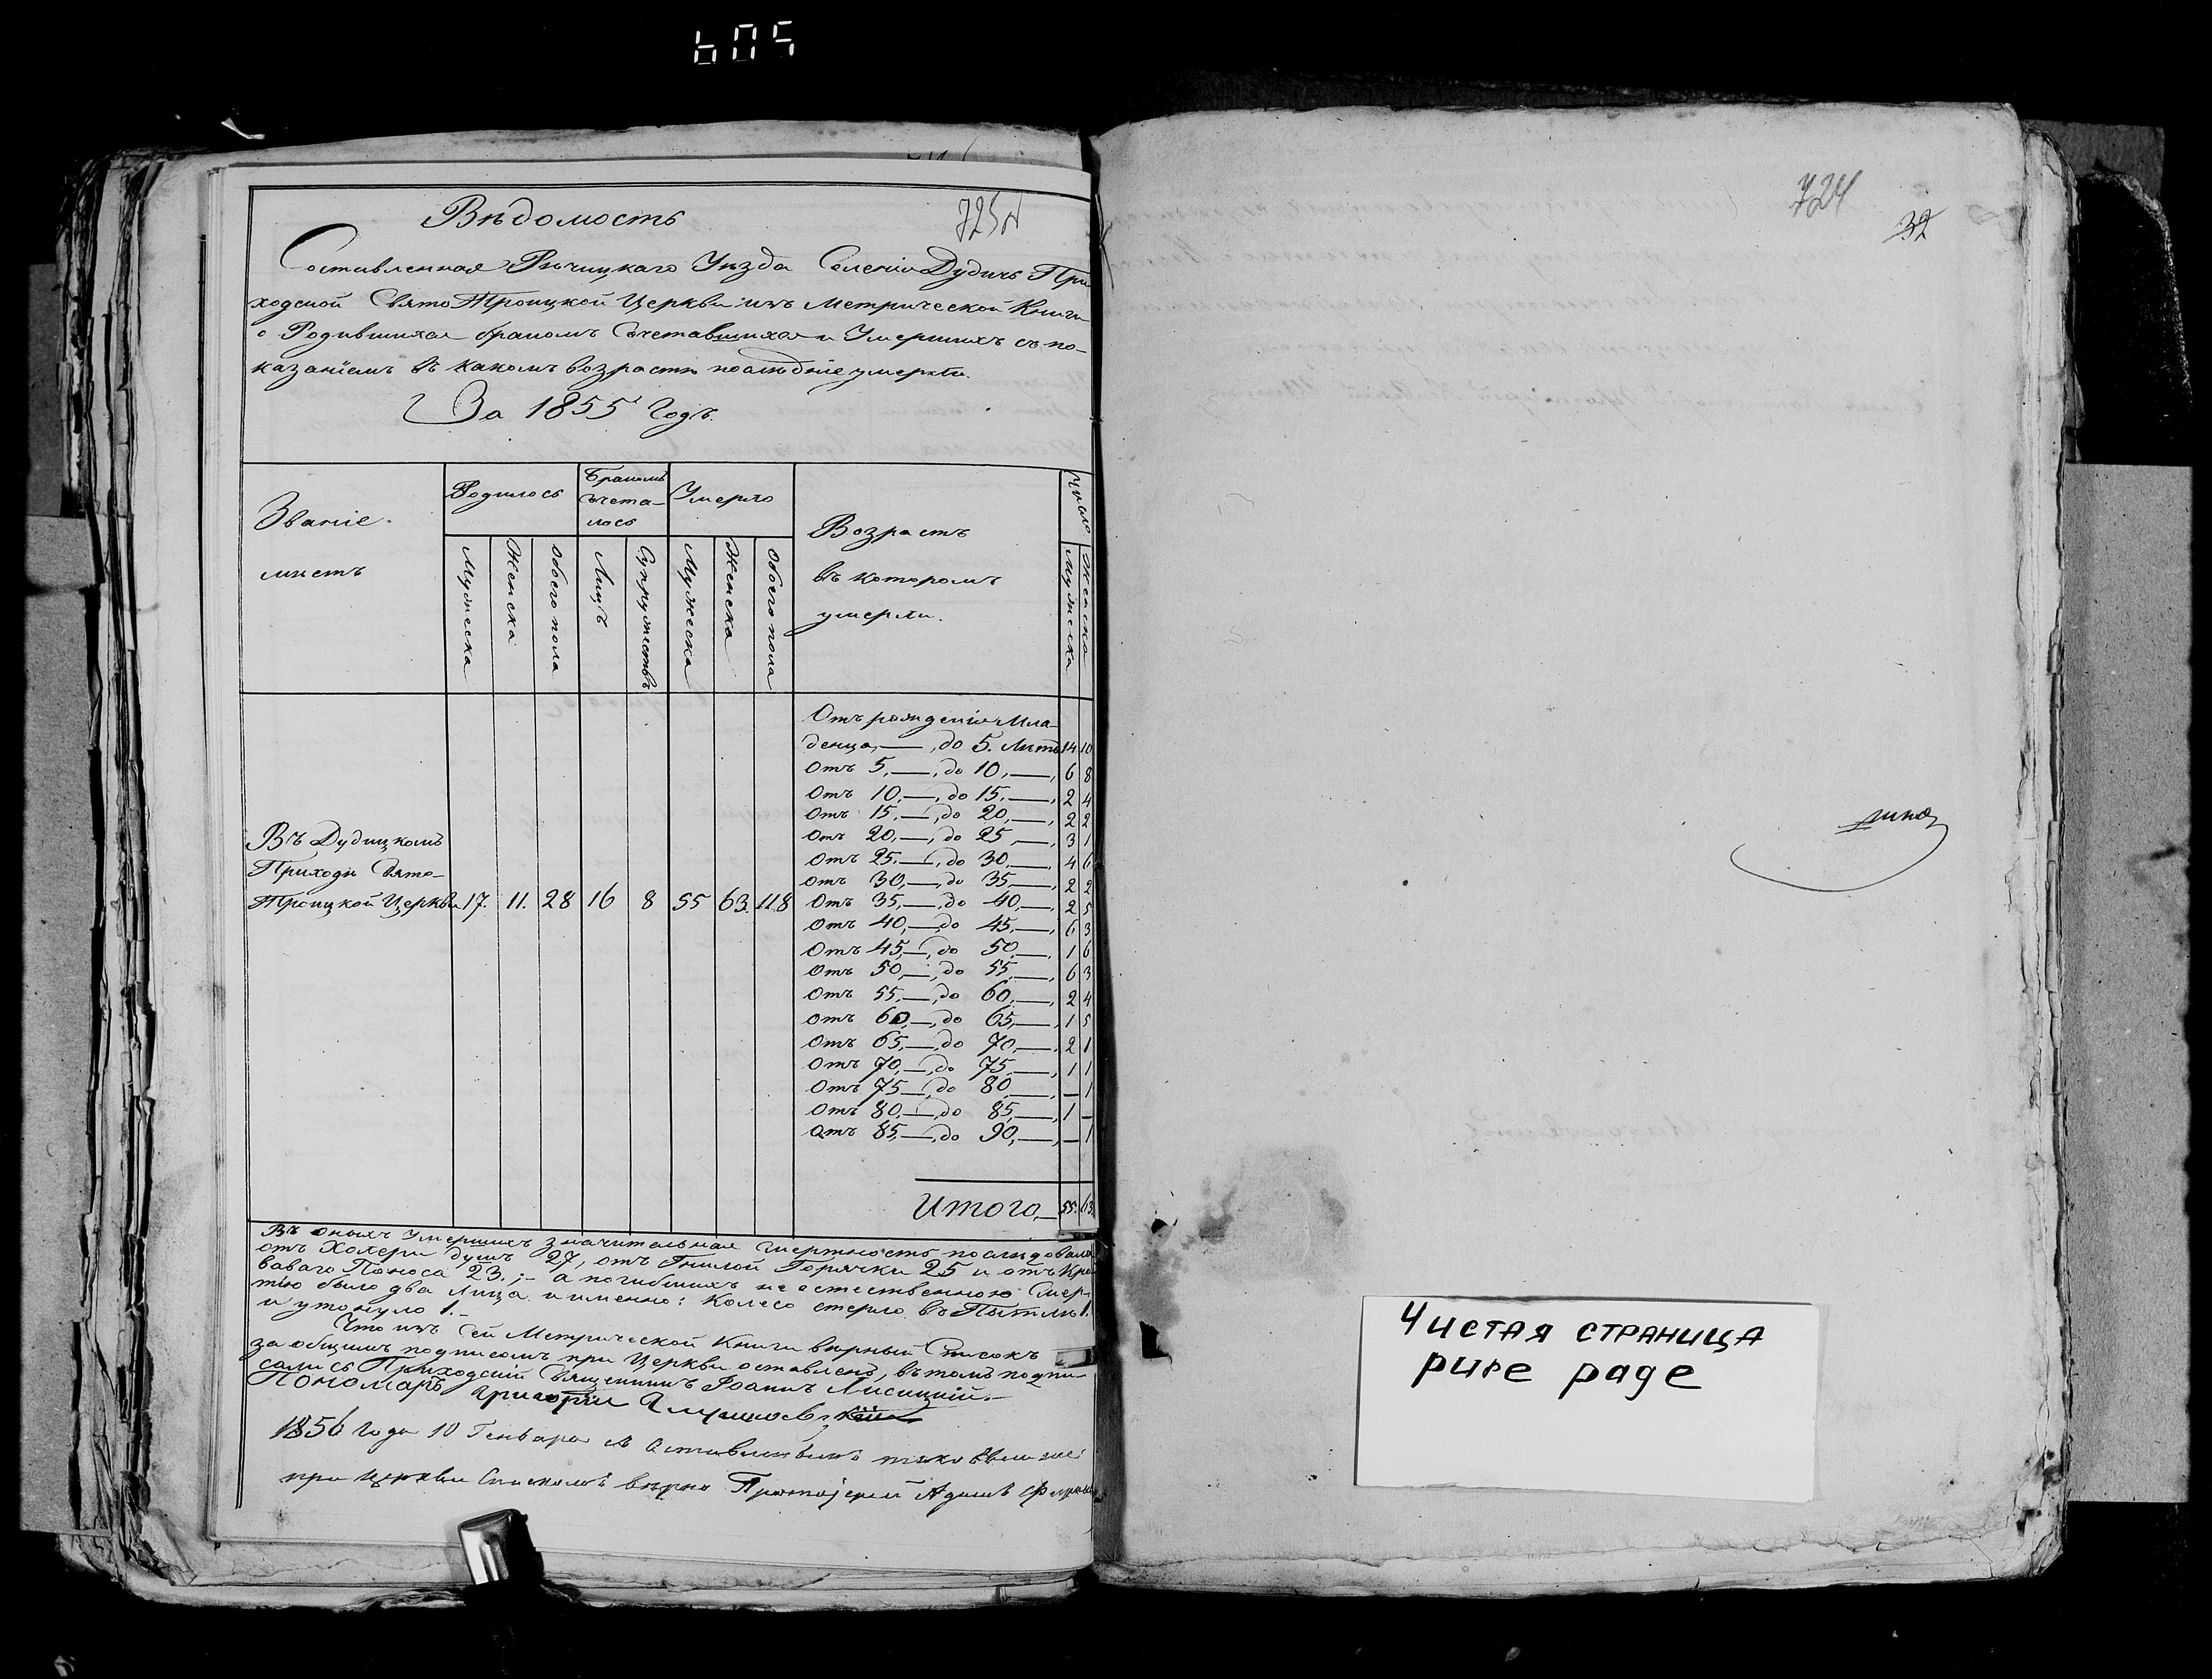 605
Вѣдомость
723
Составленная Рѣчицкаго Уѣзда Селенія Дудичъ При
ходской Свято Троицкой Церкви изъ Метрической Книги
о Родившихся бракомъ Сочетавшихся и Умершихъ съ по-
казаніемъ въ какомъ возрастѣ послѣдніе умерли.
За 1855 Годъ.
Званіе
мѣстъ
Родилось
Бракомъ
сочета-
лось
Умерло
Возрастъ
въ которомъ
умерли.
Число
Мужеска
Женска
Обоего пола
Лицъ
Супружествъ
Мужеска
Женска
Обоего пола
Мужеска
Женска
Отъ рожденія Мла-
денца,—, до 5. Лѣтъ 14 10
Отъ 5,—, до 10,—, 6 8
Отъ 10,—, до 15,—, 2 4
Отъ 15,—, до 20,—, 2 2
Отъ 20,—, до 25,—, 3 1
Отъ 25,—, до 30,—, 4 6
Отъ 30,—, до 35,—, 2 2
Отъ 35,—, до 40,—, 2 5
Отъ 40,—, до 45,—, 6 3
Отъ 45,—, до 50,—, 1 6
Отъ 50,—, до 55,—, 6 3
Отъ 55,—, до 60,—, 2 4
Отъ 60,—, до 65,—, 1 5
Отъ 65,—, до 70,—, 2 1
Отъ 70,—, до 75,—, 1 1
Отъ 75,—, до 80,—, — 1
Отъ 80,—, до 85,—, 1 —
Отъ 85,—, до 90,—, — 1
Въ Дудицкомъ
Приходѣ Свято-
Троицкой Церкви 17. 11. 28 16 8 55 63. 118
Итого,— 55. 63
Въ оныхъ Умершихъ значительная Смертность послѣдовала
отъ Холеры душъ 27, отъ Гнилой Горячки 25 и отъ Кро
ваваго Поноса 23.;- а погибшихъ не естественною Смер
тію было два Лица и именно: колесо стерло въ Пытлѣ 1.
и утонуло 1.-
Что изъ Сей Метрической Книги вѣрный Списокъ
за общимъ подписомъ при Церкви оставленъ, въ томъ подпи-
сались Приходскій Священникъ Іоаннъ Лисицкій.-
Пономаръ Григорій
1856 Года 10 Генваря съ
при Церкви Спискомъ вѣрно Протоіерей Адамъ
724
32
Чистая страница
pure page